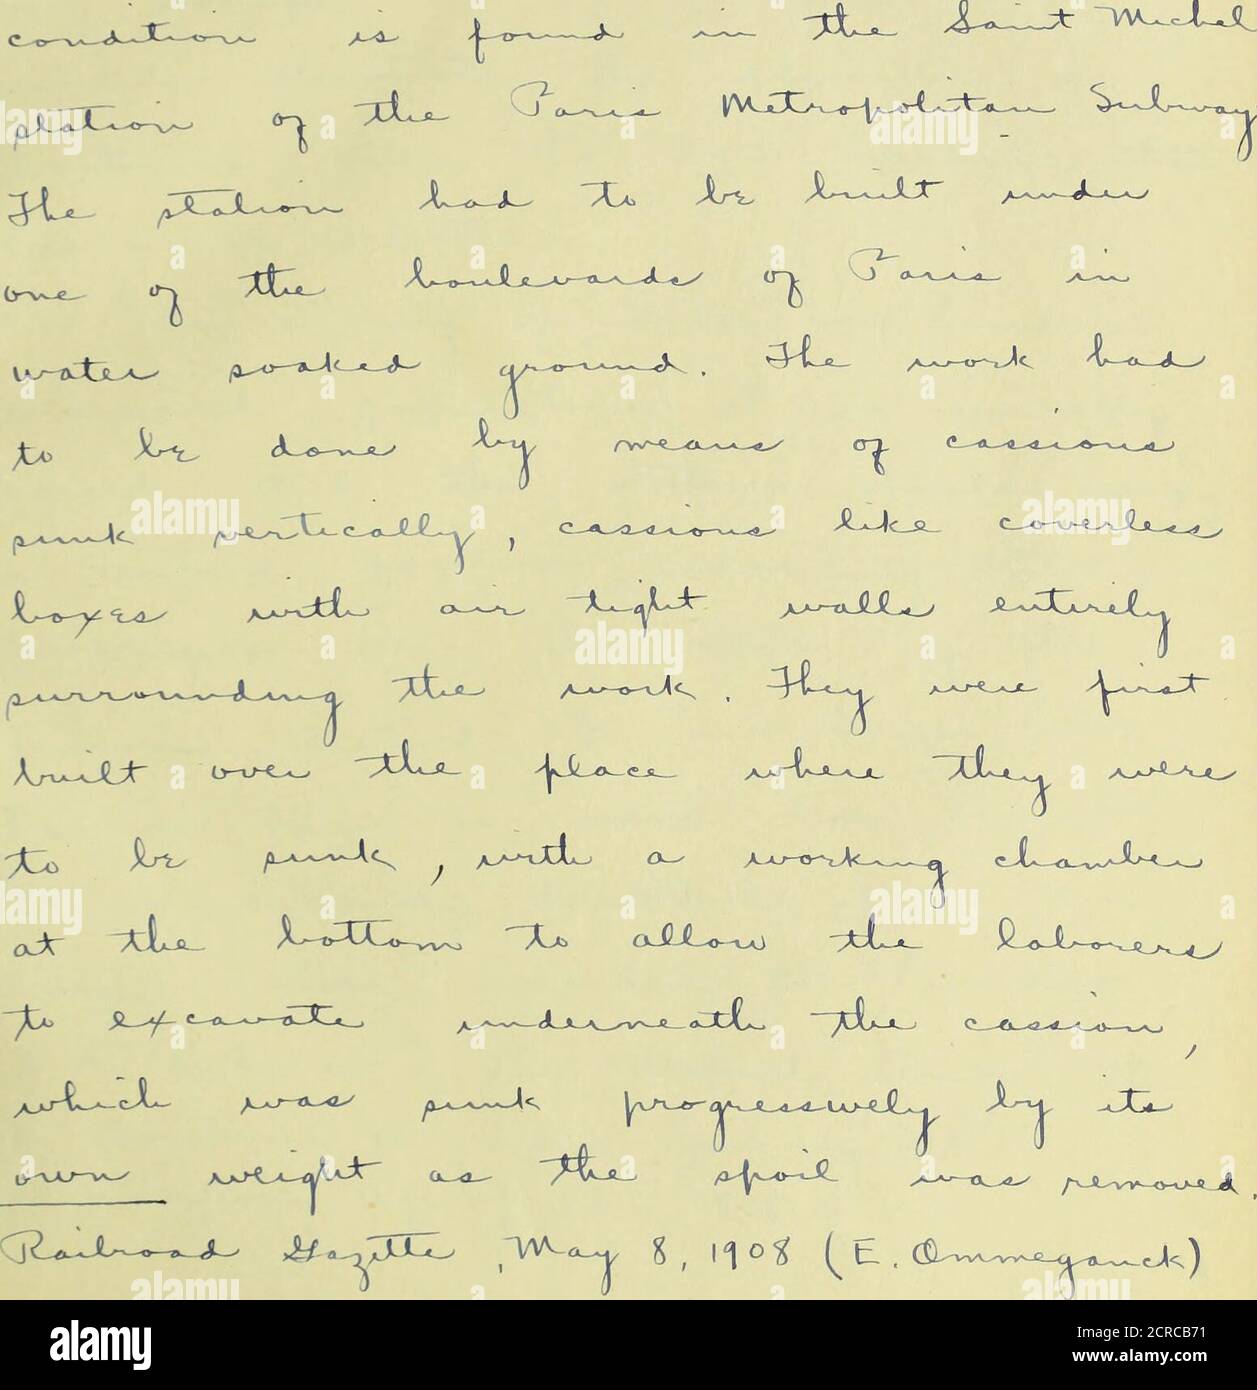 condition is found in the Saint Michel
station of the Paris Metropolitan Subway
The station had to be built under
one of the boulevards of Paris in
water soaked ground. The work had
to be done by means of cassions
sunk vertically, cassions like coverless
boxes with air tight walls entirely
surrounding the work. They were first
built over the place where they were
to be sunk, with a working chamber
at the bottom to allow the laborers
to excavate underneath the cassion,
which was sunk progressively by its
own weight as the spoil was removed.
Railroad Gazette, May 8, 1908 (E. Ommeganck)
alamy
Image ID: 2CRCB71
www.alamy.com